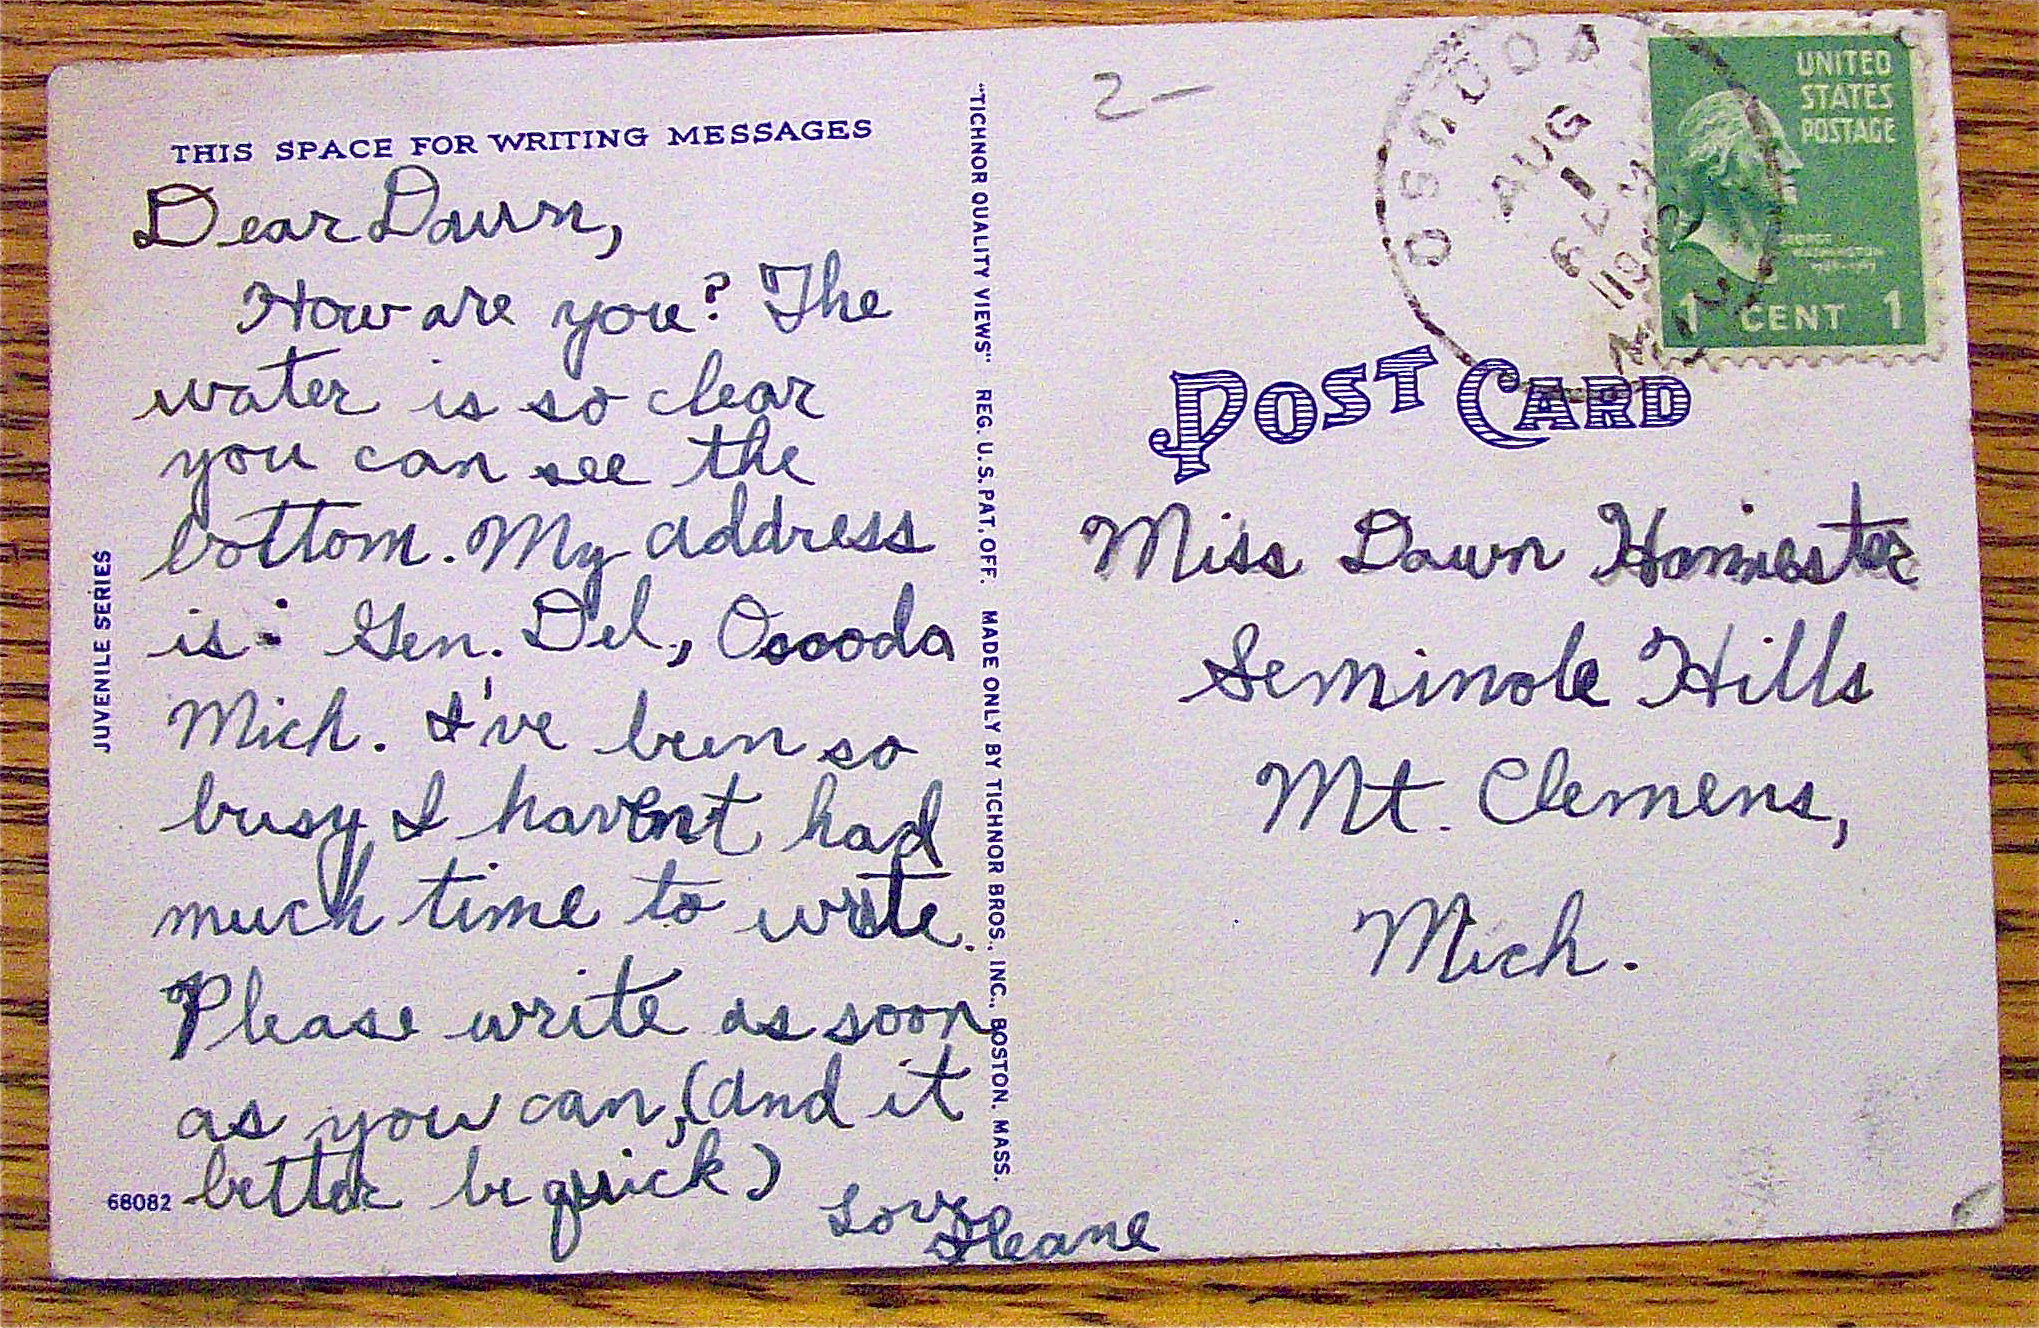 THIS SPACE FOR WRITING MESSAGES
Dear Dawn,
How are you? The
water is so clear
you can see the
bottom. My address
is: Gen. Del, Ocooda
Mich. I've been so
busy I havent had
much time to write.
Please write as soon
as you can, (and it
better be quick)
Love
Ileane
JUVENILE SERIES
68082
"TICHNOR QUALITY VIEWS" REG. U.S. PAT. OFF. MADE ONLY BY TICHNOR BROS., INC., BOSTON, MASS.
2-
OSCODA
AUG
1
UNITED
STATES
POSTAGE
1 CENT 1
POST CARD
Miss Dawn
Seminole Hills
Mt. Clemens,
Mich.